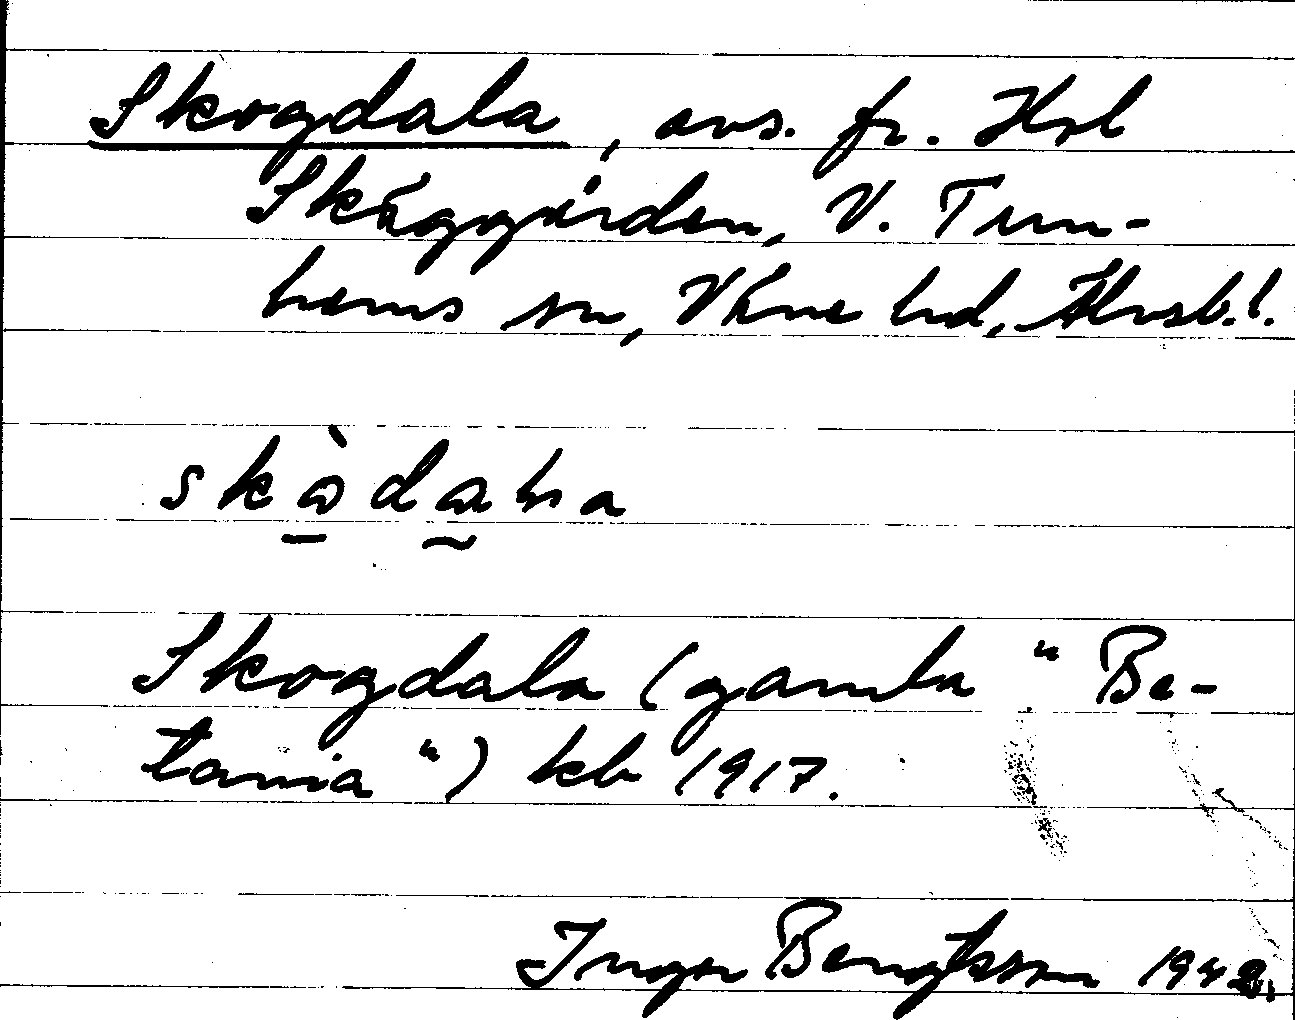 Skogdala, avs. fr. Hsl
Skäggården, V. Tun-
hems sn, Väne hd, Älvsb.l.
Skogdala (gamla "Be-
tania") kb 1917.
Inger Bengtsson 1942.